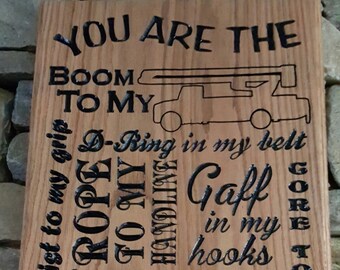 YOU ARE THE
BOOM
TO MY
D-Ring in my belt
ist to my grip
ROPE
TO MY
HANDLINE
Gaff
in my
hooks
TO